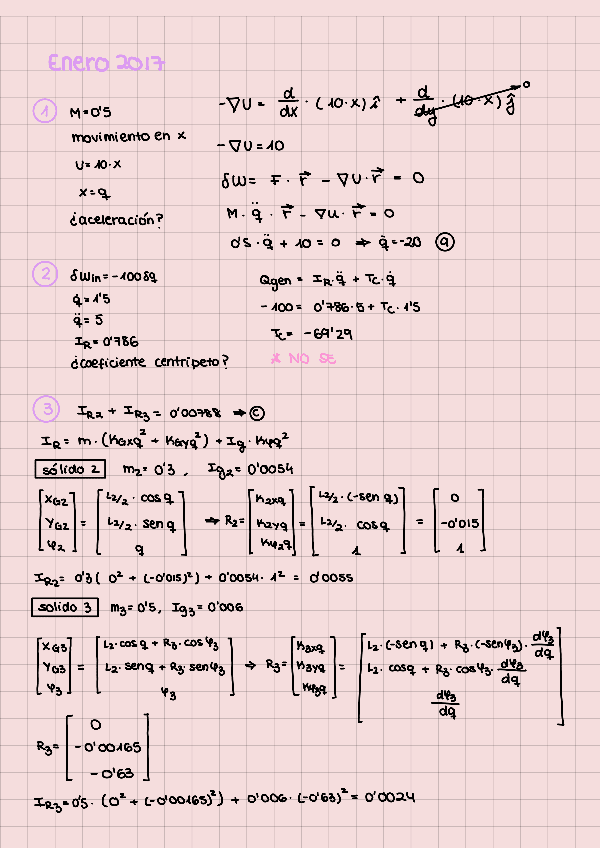 Enero 2017
1 M=0'5
movimiento en x
U=10·x
x=q
¿aceleración?
-∇U = d/dx · (10·x) î + d/dy · (10·x) ĵ 0
-∇U = 10
δW = F · r⃗ - ∇U · r⃗ = 0
M · q̈ · r⃗ - ∇U · r⃗ = 0
0'5 · q̈ + 10 = 0 ⇒ q̈ = -20 a
2 δWin = -100δq
q̇ = 1'5
q̈ = 5
I_R = 0'786
¿coeficiente centrípeto?
Qgen = I_R · q̈ + Tc · q̇
-100 = 0'786 · 5 + Tc · 1'5
Tc = -69'29
* NO SE
3 I_R2 + I_R3 = 0'00788 ⇒ c
I_R = m · (K_Gxq² + K_Gyq²) + I_g · K_φq²
sólido 2 m₂ = 0'3 , I_g2 = 0'0054
[X_G2 Y_G2 φ₂] = [L₂/2 · cos q L₂/2 · sen q q] ⇒ R₂ = [K_2xq K_2yq K_φ2q] = [L₂/2 · (-sen q) L₂/2 · cos q 1] = [0 -0'015 1]
I_R2 = 0'3 ( 0² + (-0'015)²) + 0'0054 · 1² = 0'0055
solido 3 m₃ = 0'5, I_g3 = 0'006
[X_G3 Y_G3 φ₃] = [L₂ · cos q + R₃ · cos φ₃ L₂ · sen q + R₃ · sen φ₃ φ₃] ⇒ R₃ = [K_3xq K_3yq K_φ3q] = [L₂ · (-sen q) + R₃ · (-sen φ₃) · dφ₃/dq L₂ · cos q + R₃ · cos φ₃ · dφ₃/dq dφ₃/dq]
R₃ = [0 -0'00165 -0'63]
I_R3 = 0'5 · (0² + (-0'00165)²) + 0'006 · (-0'63)² = 0'0024